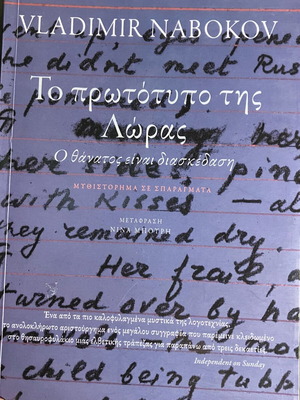 VLADIMIR NABOKOV
he didn't meet Rus
Το πρωτότυπο της
Λώρας
Ο θάνατος είναι διασκέδαση
ΜΥΘΙΣΤΟΡΗΜΑ ΣΕ ΣΠΑΡΑΓΜΑΤΑ
with kisses — al
ΜΕΤΑΦΡΑΣΗ
ΝΙΝΑ ΜΠΟΥΡΗ
hey remained dry.
Her frail
turned over by
Ένα από τα πιο καλοφυλαγμένα μυστικά της λογοτεχνίας:
το ανολοκλήρωτο αριστούργημα ενός μεγάλου συγγραφέα που παρέμεινε κλειδωμένο
στο θησαυροφυλάκιο μιας ελβετικής τράπεζας για παραπάνω από τρεις δεκαετίες.
Independent on Sunday
child being tubb